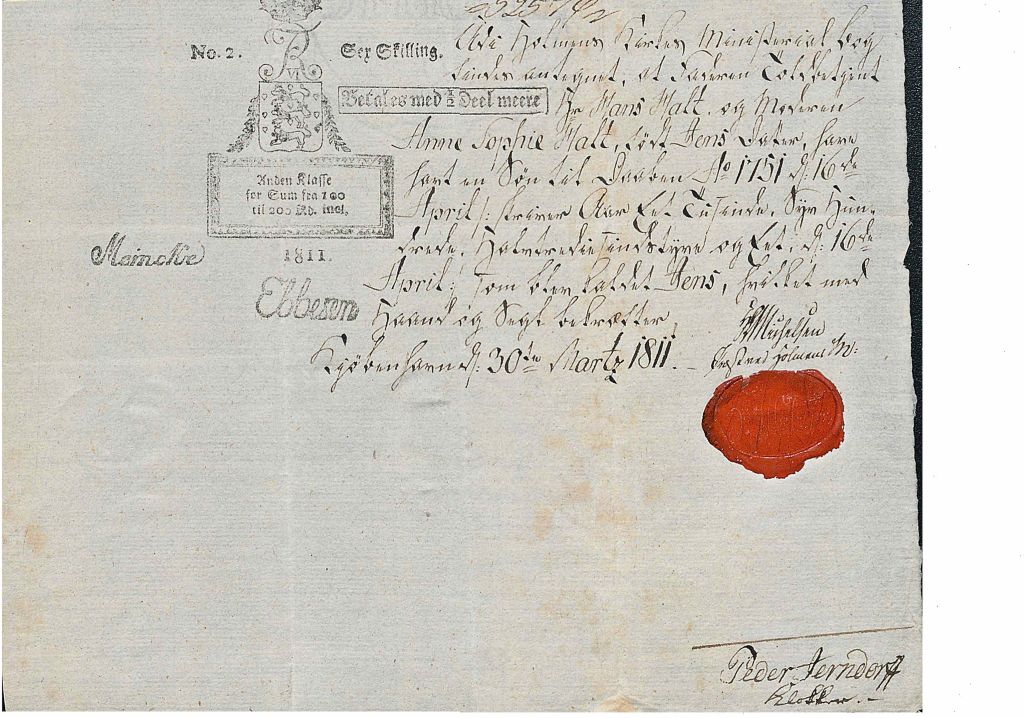 No. 2.
VI
Sex Skilling.
Betales med ½ Deel meere
Anden Klasse
for Sum fra 100
til 200 Rd. incl.
1811.
Meincke
Ebbesen
Udi Holmens Kirkes Ministerial Bog
findes antegnet, at Faderen Toldbetjent
Hr Hans Halt, og Moderen
Anne Sophie Halt, født Jens Datter, have
havt en Søn til Daaben Ao 1751 d: 16de
April /: skriver Aar Eet Tusinde, Syv Hun-
drede, Halvtrediesindstyve og Eet, d: 16de
April :/ som blev kaldet Jens, hvilket med
Haand og Segl bekræfter
Kjøbenhavn d: 30te Martz 1811.
Michelsen
Provst ved Holmens M:
Peder Jerndorff
Klokker.